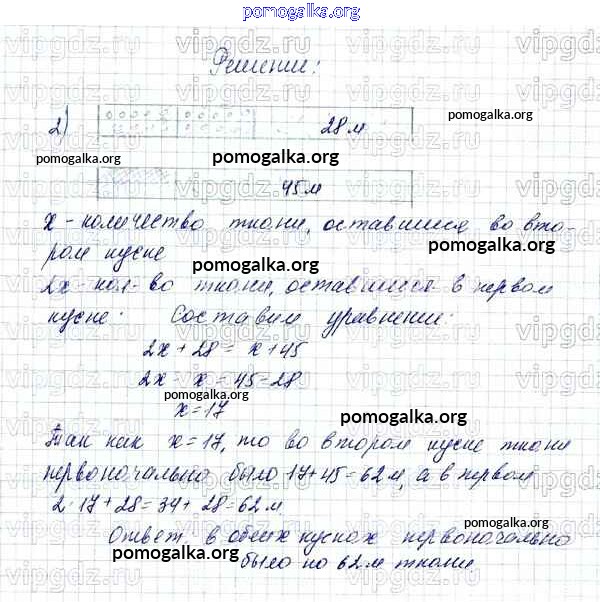 pomogalka.org
Решение:
2)
28 м
pomogalka.org
pomogalka.org
pomogalka.org
45 м
x - количество ткани, оставшиеся во вто-
ром куске
pomogalka.org
pomogalka.org
2x - кол-во ткани, оставшиеся в первом
куске. Составим уравнение:
2x + 28 = x + 45
2x - x = 45 - 28
pomogalka.org
x = 17
pomogalka.org
Так как x = 17, то во втором куске ткани
первоначально было 17 + 45 = 62 м, а в первом
2·17 + 28 = 34 + 28 = 62 м.
pomogalka.org
Ответ: в обеих кусках первоначально
pomogalka.org
было по 62 м ткани.
pomogalka.org